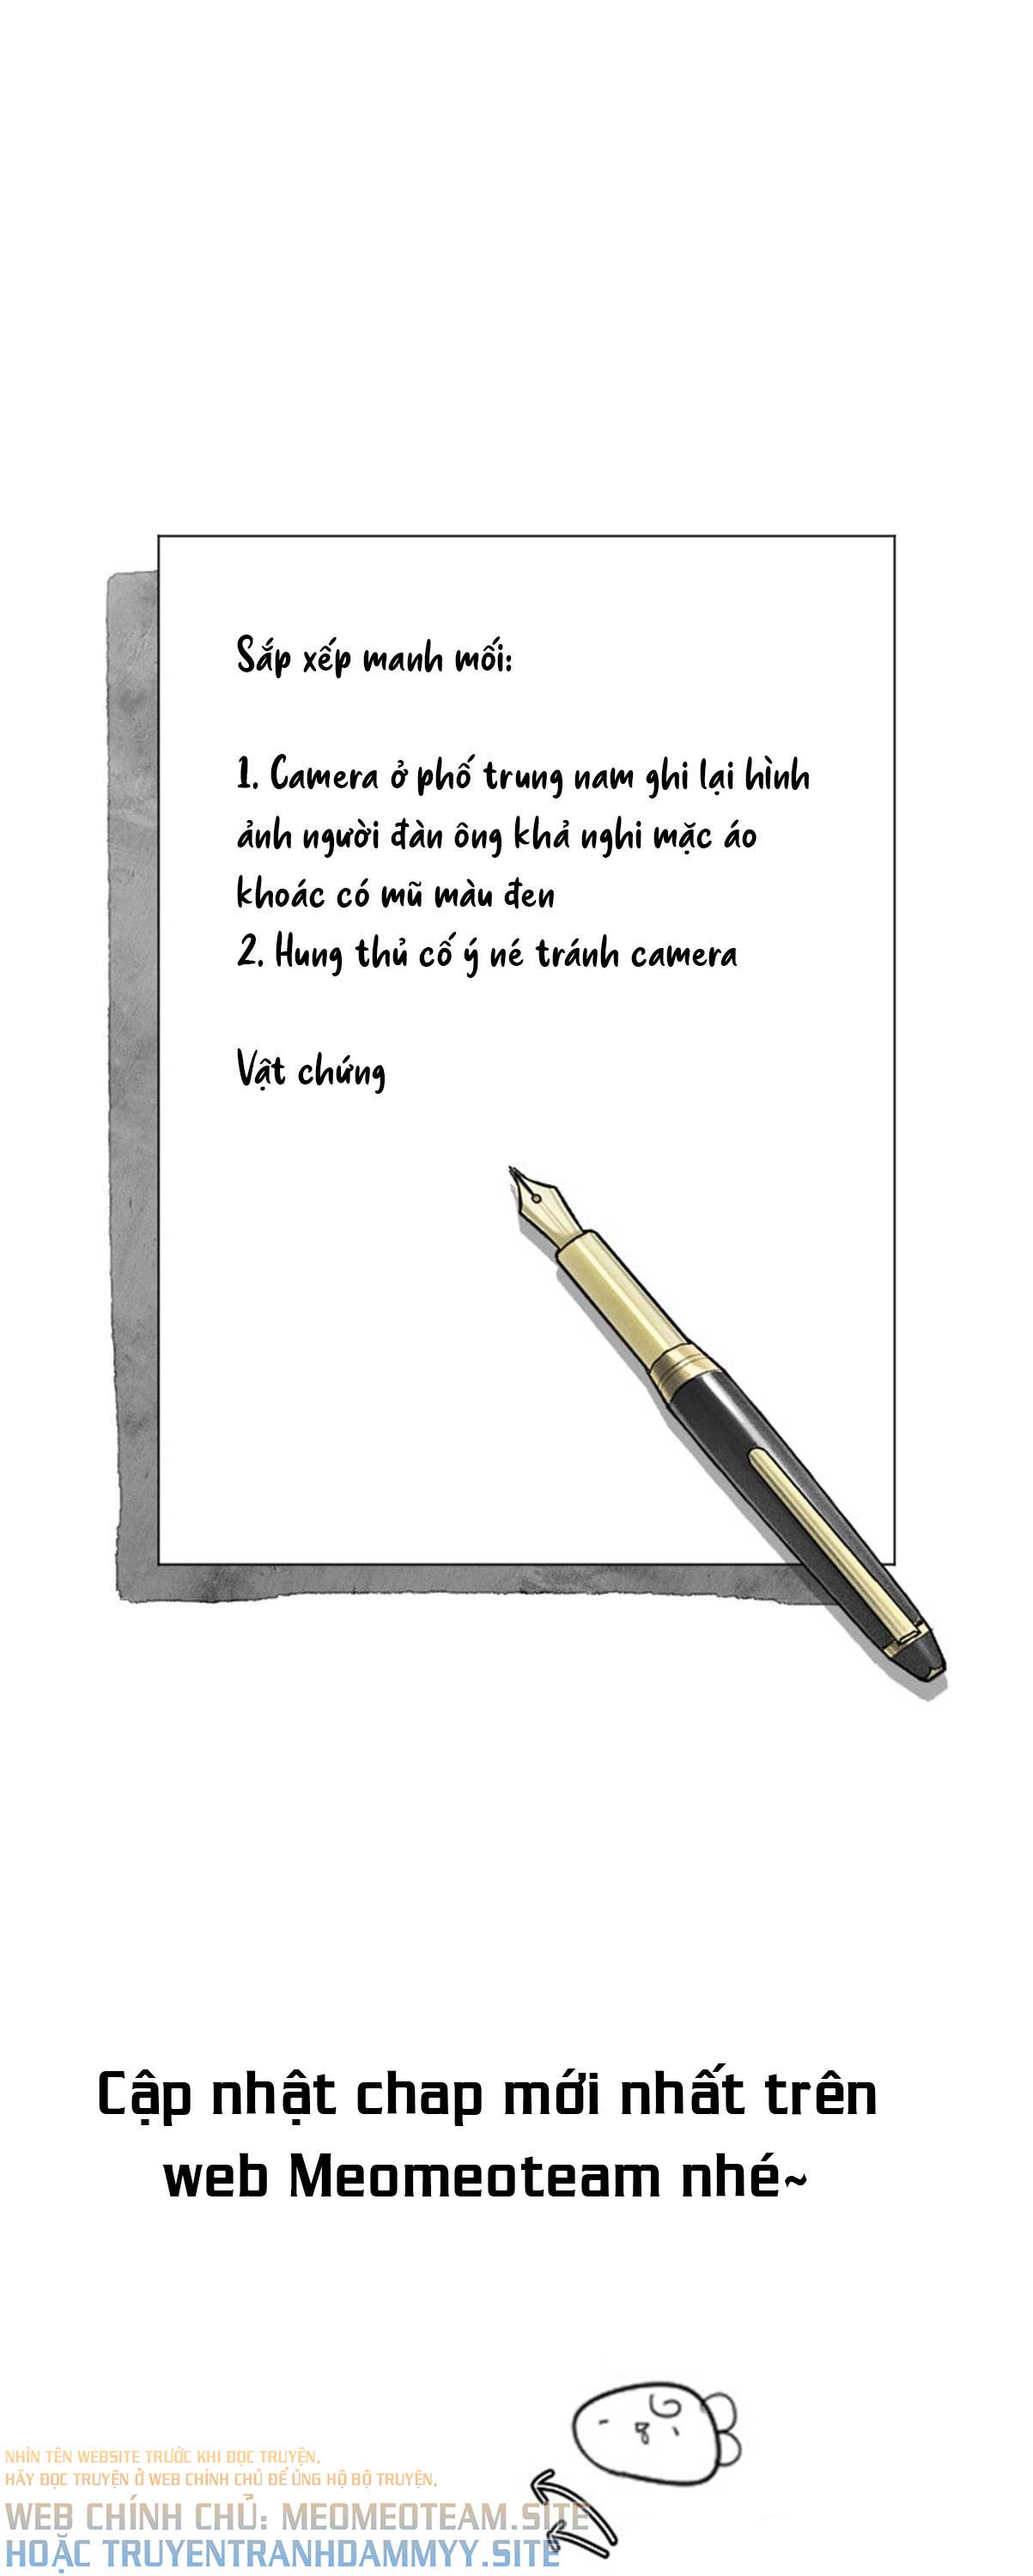 Sắp xếp manh mối:
1. Camera ở phố trung nam ghi lại hình
ảnh người đàn ông khả nghi mặc áo
khoác có mũ màu đen
2. Hung thủ cố ý né tránh camera
Vật chứng
Cập nhật chap mới nhất trên
web Meomeoteam nhé~
NHÌN TÊN WEBSITE TRƯỚC KHI ĐỌC TRUYỆN.
HÃY ĐỌC TRUYỆN Ở WEB CHÍNH CHỦ ĐỂ ỦNG HỘ BỘ TRUYỆN.
WEB CHÍNH CHỦ: MEOMEOTEAM.SITE
HOẶC TRUYENTRANHDAMMYY.SITE